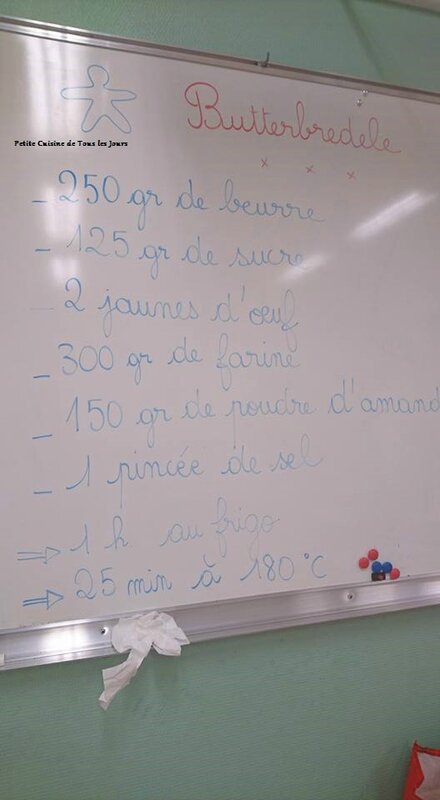 Butterbredele
Petite Cuisine de Tous les Jours
x x x
- 250 gr de beurre
- 125 gr de sucre
- 2 jaunes d'œuf
- 300 gr de farine
- 150 gr de poudre d'amand
- 1 pincée de sel
⇒ 1 h au frigo
⇒ 25 min à 180 °C